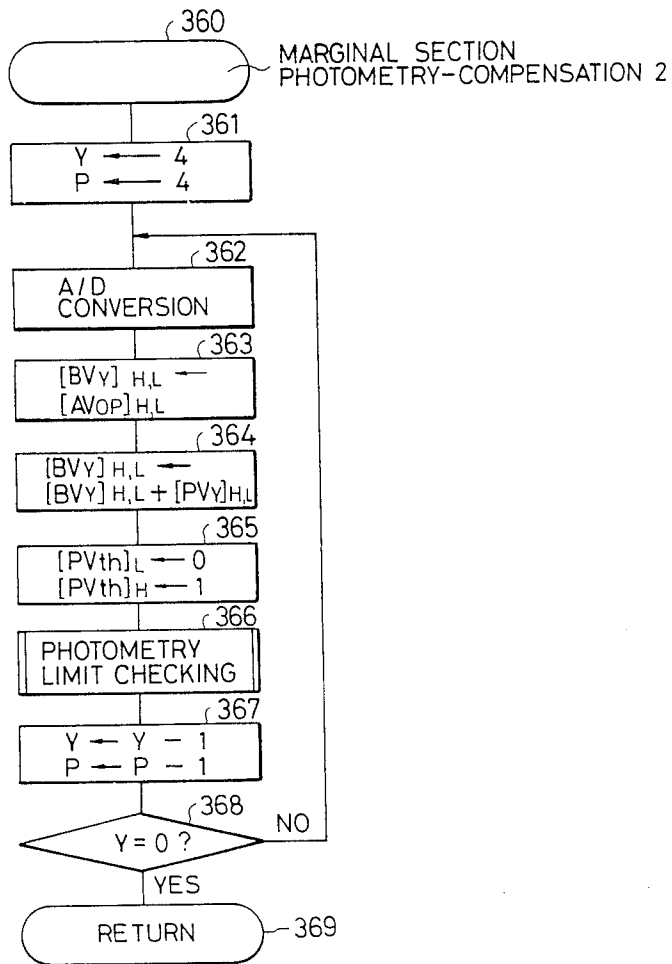 360
MARGINAL SECTION
PHOTOMETRY-COMPENSATION 2
361
Y ← 4
P ← 4
362
A/D
CONVERSION
363
[BVY] H,L ←
[AVOP]H,L
364
[BVY] H,L ←
[BVY] H,L + [PVY]H,L
365
[PVth]L ← 0
[PVth]H ← 1
366
PHOTOMETRY
LIMIT CHECKING
367
Y ← Y - 1
P ← P - 1
368
Y = 0 ?
NO
YES
RETURN
369